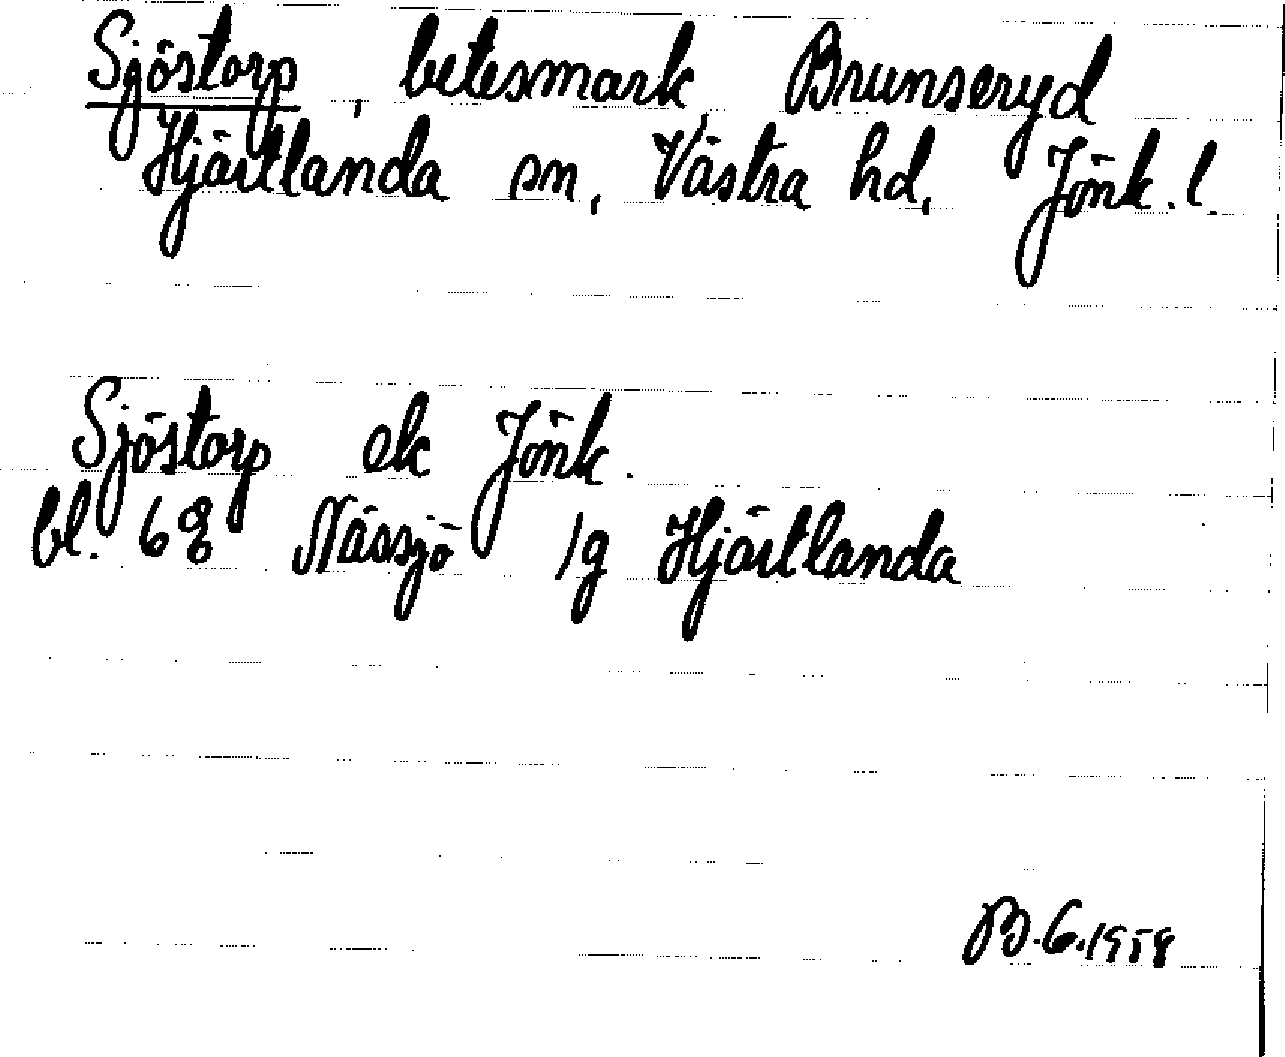 Sjöstorp, betesmark, Brunseryd
Hjärtlanda sn, Västra hd, Jönk. l.
Sjöstorp ek Jönk.
bl. 68 Nässjö 1g Hjärtlanda
B.G. 1958